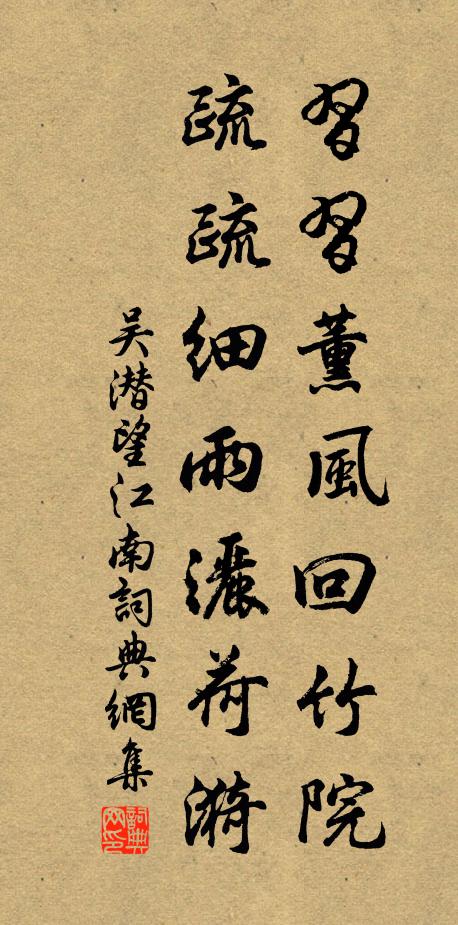 習習薰風回竹院
疏疏細雨灑荷漪
吴潜望江南詞典網集
詞典网印